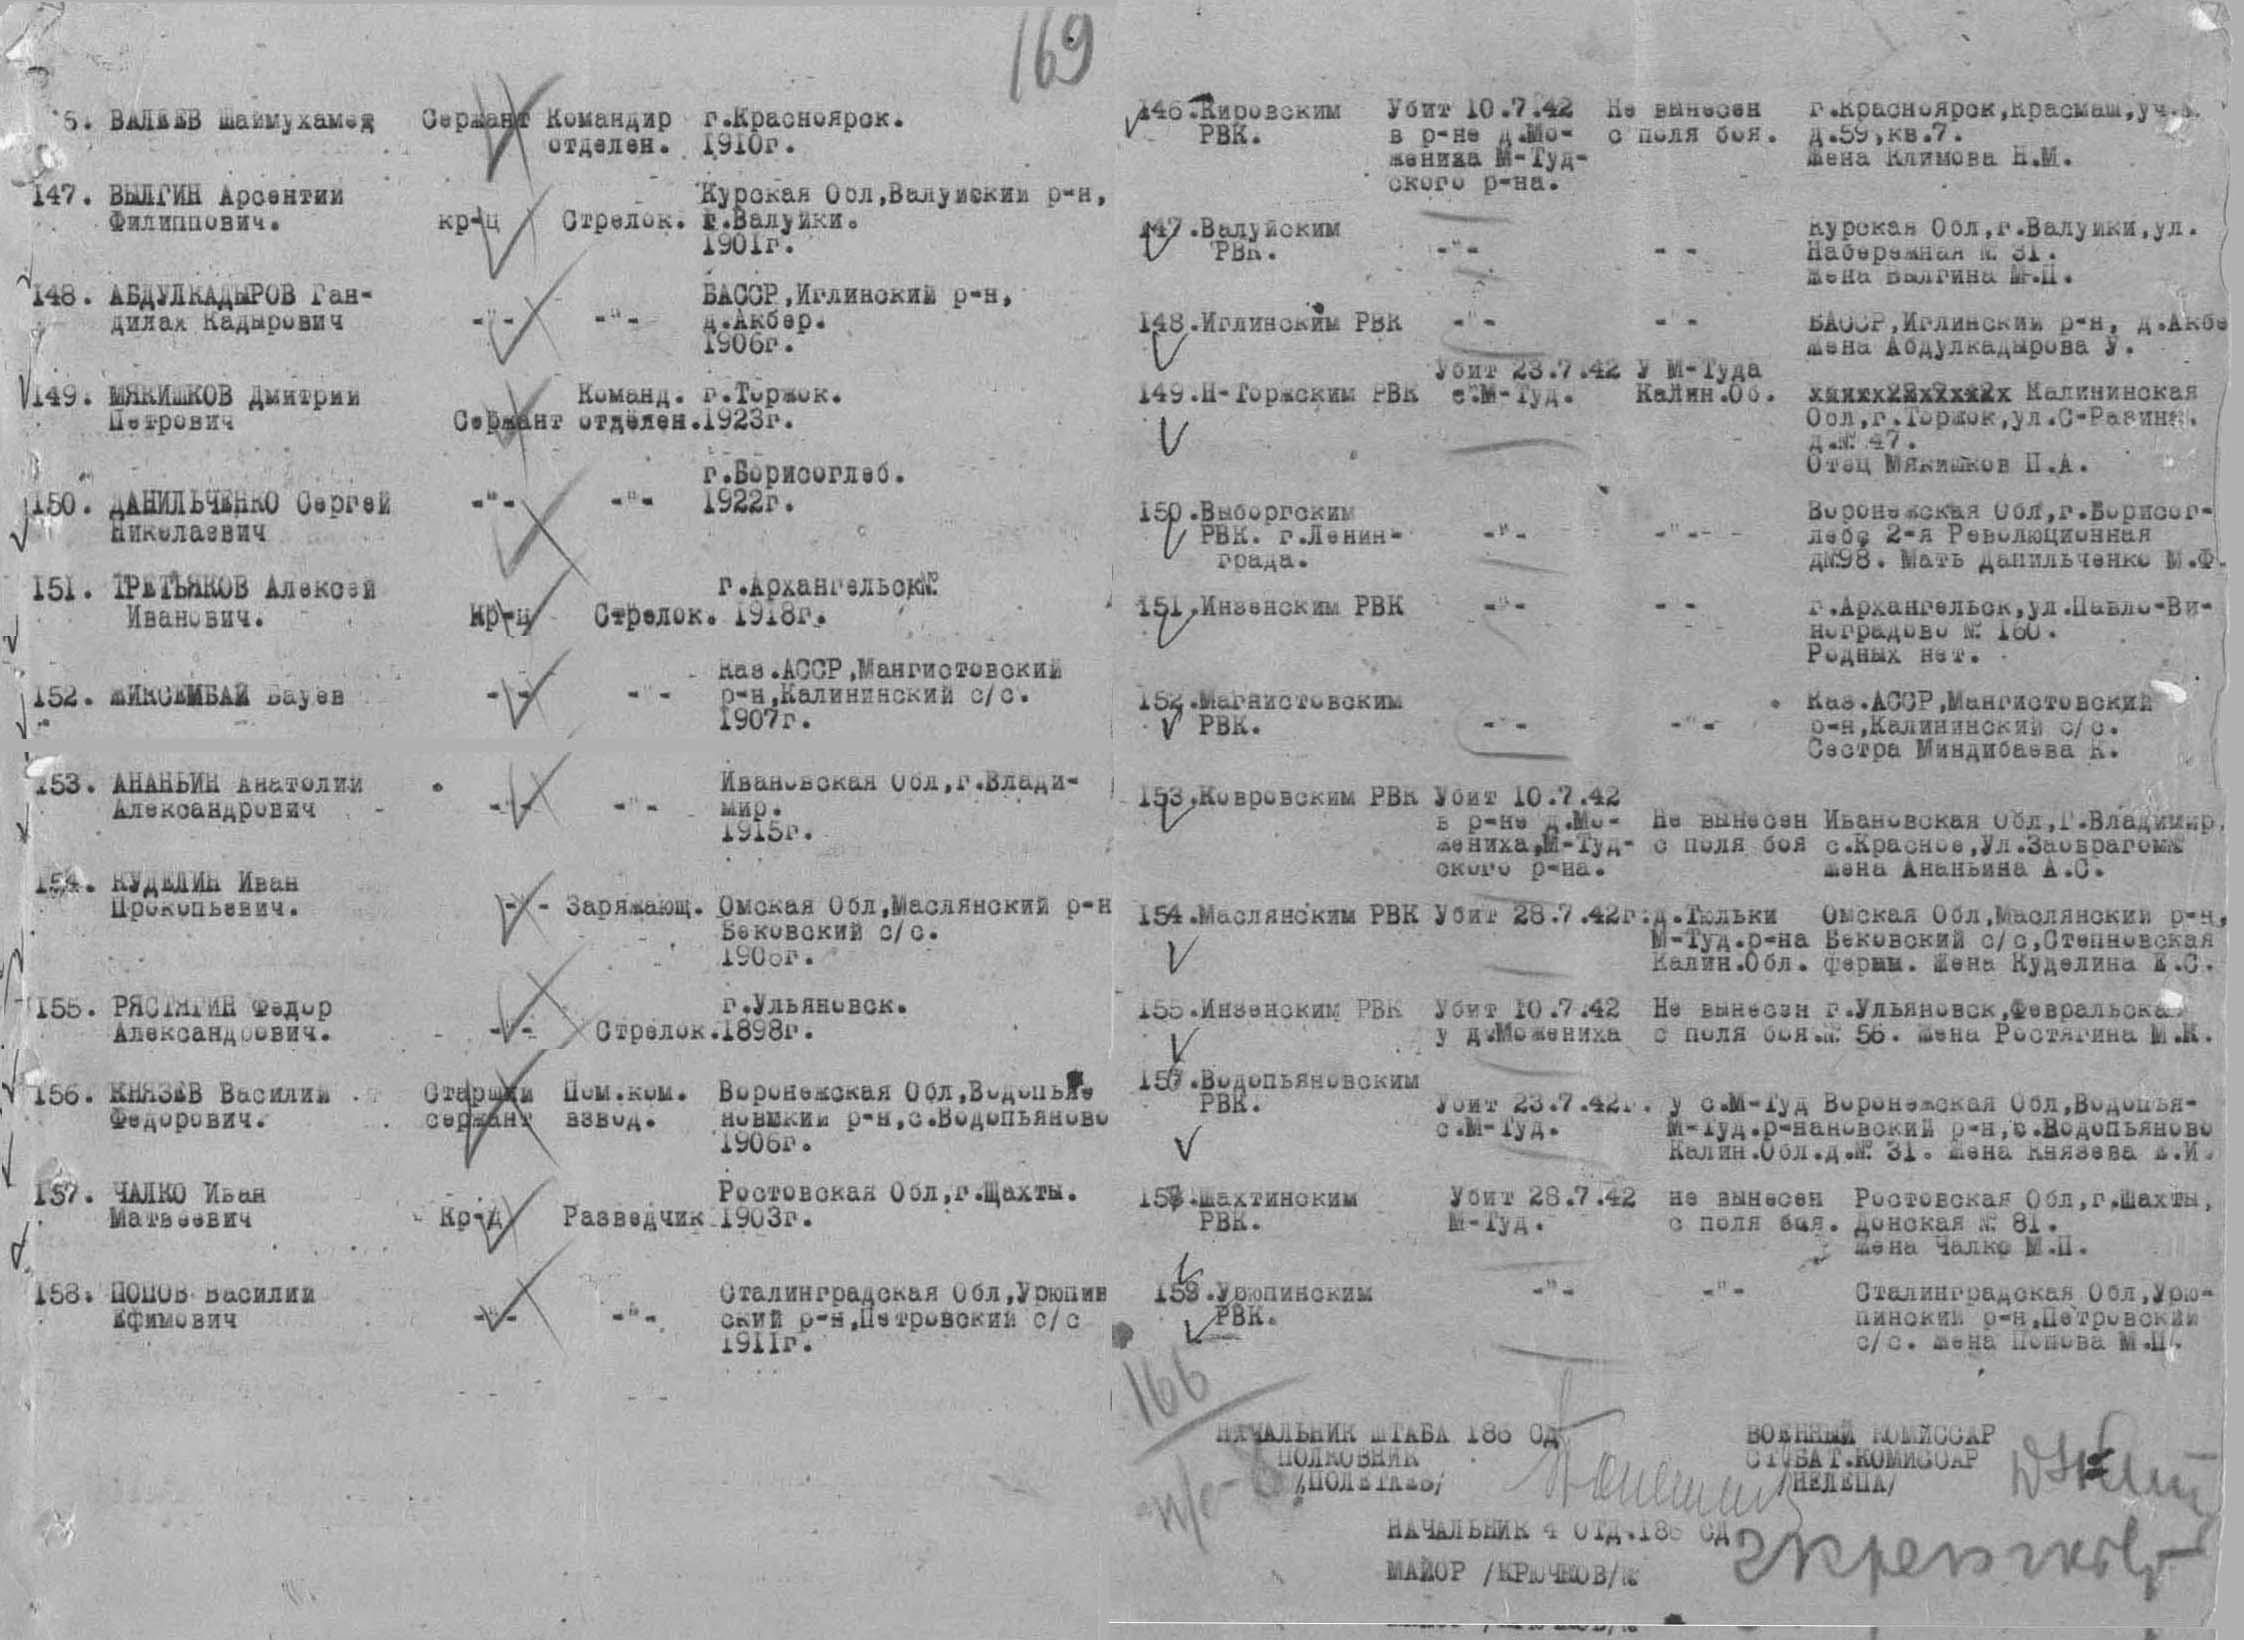 169
6. ВАЛЕЕВ Шаймухамед Сержант Командир г.Красноярск.
отделен. 1910г.
147. ВЫЛГИН Арсентий Курская Обл,Валуйский р-н,
Филиппович. кр-ц Стрелок. г.Валуйки.
1901г.
148. АБДУЛКАДЫРОВ Ган- БАССР,Иглинский р-н,
дилах Кадырович -"- -"- д.Акбер.
1906г.
149. МЯКИШКОВ Дмитрий Команд. г.Торжок.
Петрович Сержант отделен.1923г.
г.Борисоглеб.
150. ДАНИЛЬЧЕНКО Сергей -"- -"- 1922г.
Николаевич
151. ТРЕТЬЯКОВ Алексей г.Архангельск№
Иванович. Кр-ц Стрелок. 1918г.
Каз.АССР,Мангистовский
152. ЖИКСЕМБАЙ Бауев -"- -"- р-н,Калининский с/с.
1907г.
153. АНАНЬИН Анатолий Ивановская Обл,г.Влади-
Александрович -"- -"- мир.
1915г.
154. КУДЕЛИН Иван
Прокопьевич. -"- Заряжающ. Омская Обл,Маслянский р-н
Бековский с/с.
1906г.
155. РЯСТЯГИН Федор г.Ульяновск.
Александрович. -"- Стрелок.1898г.
156. КНЯЗЕВ Василий Старший Пом.ком. Воронежская Обл,Водопья
Федорович. сержант взвод. новмкий р-н,с.Водопьяново
1906г.
157. ЧАЛКО Иван Ростовская Обл,г.Щахты.
Матвеевич Кр-д Разведчик 1903г.
158. ПОПОВ Василий Сталинградская Обл,Урюпин
Ефимович -"- -"- ский р-н,Петровский с/с
1911г.
146.Кировским Убит 10.7.42 Не вынесен г.Красноярск,Красмаш,уч.
РВК. в р-не д.Мо- с поля боя. д.59,кв.7.
жениха М-Туд- Жена Климова Н.М.
ского р-на.
147.Валуйским Курская Обл,г.Валуйки,ул.
РВК. -"- - - Набережная № 31.
Жена Вылгина М.П.
148.Иглинским РВК -"- -"- БАССР,Иглинский р-н, д.Акбе
Жена Абдулкадырова У.
Убит 23.7.42 У М-Туда
149.Н-Торжским РВК с.М-Туд. Калин.Об. Калининская
Обл,г.Торжок,ул.С-Разина.
д.№ 47.
Отец Мякишков П.А.
150.Выборгским Воронежская Обл,г.Борисог-
РВК. г.Ленин- -"- -"- лебс 2-я Революционная
града. д№98. Мать Данильченко М.Ф.
151.Инзенским РВК -"- - - г.Архангельск,ул.Павло-Ви-
ноградово № 160.
Родных нет.
152.Магнистовским Каз.АССР,Мангистовский
РВК. -"- -"- р-н,Калининский с/с.
Сестра Миндибаева К.
153.Ковровским РВК Убит 10.7.42
в р-не д.Мо- Не вынесен Ивановская Обл,Г.Владимир,
жениха,М-Туд- с поля боя с.Красное,Ул.Заоврагом№
ского р-на. Жена Ананьина А.С.
154.Маслянским РВК Убит 28.7.42г.д.Тюльки Омская Обл,Маслянский р-н,
М-Туд.р-на Бековский с/с,Степновская
Калин.Обл. фермы. Жена Куделина Е.С.
155.Инзенским РВК Убит 10.7.42 Не вынесен г.Ульяновск,Февральская
у д.Можениха с поля боя.№ 56. Жена Ростягина М.К.
157.Водопьяновским
РВК. Убит 23.7.42г. у с.М-Туд Воронежская Обл,Водопья-
с.М-Туд. М-Туд.р-нановский р-н,с.Водопьяново
Калин.Обл.д.№ 31. Жена Князева Е.И.
158.Шахтинским Убит 28.7.42 не вынесен Ростовская Обл,г.Шахты,
РВК. М-Туд. с поля боя. Донская № 81.
Жена Чалко М.П.
159.Урюпинским -"- -"- Сталинградская Обл,Урю-
РВК. пинский р-н,Петровский
с/с. Жена Попова М.П.
166
НАЧАЛЬНИК ШТАБА 186 СД ВОЕННЫЙ КОМИССАР
ПОЛКОВНИК СТ.БАТ.КОМИССАР
/ПОЛЕТАЕВ/ /НЕЛЕПА/
НАЧАЛЬНИК 4 ОТД.186 СД
МАЙОР /КРЮЧКОВ/№